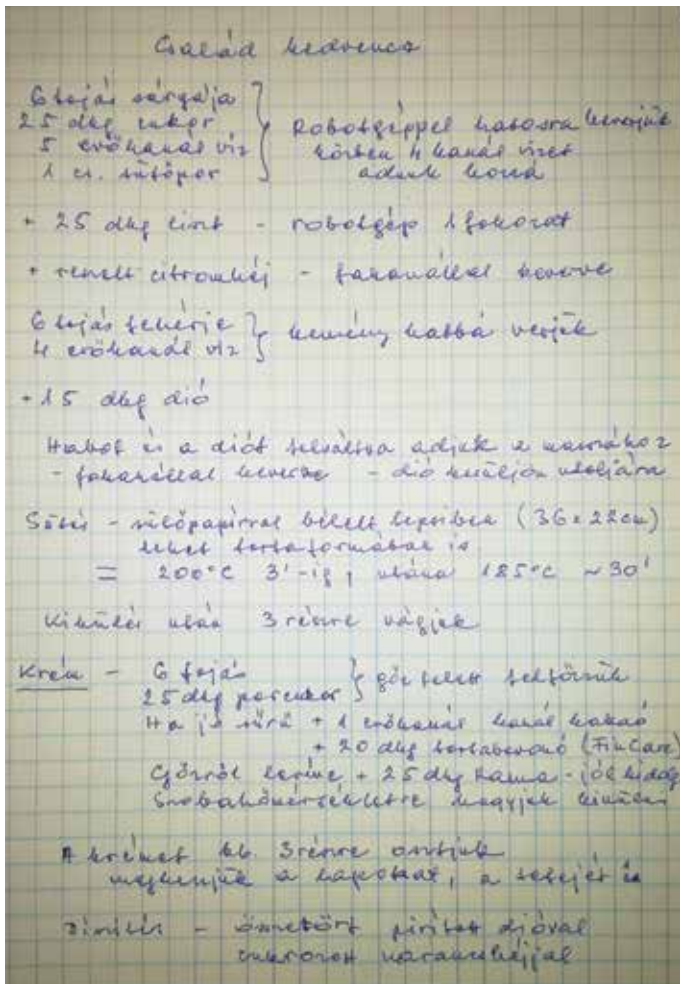 Család kedvence
6 tojás sárgája
25 dkg cukor
5 evőkanál víz
1 cs. sütőpor
Robotgéppel habosra keverjük
közben 4 kanál vizet
adunk hozzá
+ 25 dkg liszt - robotgép 1 fokozat
+ reszelt citromhéj - fakanállal keverve
6 tojás fehérje
4 evőkanál víz
kemény habbá verjük
+ 15 dkg dió
Habot és a diót felváltva adjuk a masszához
- fakanállal keverve - dió kerüljön utoljára
Sütés - sütőpapírral bélelt tepsiben (36x22cm)
lehet tortaformában is
= 200°C 3'-ig, utána 185°C ~30'
Kihűlés után 3 részre vágjuk
Krém - 6 tojás
25 dkg porcukor
gőz felett felfőzzük
Ha jó sűrű + 1 evőkanál kanál kakaó
+ 20 dkg tortabevonó (FinCare)
Gőzről levéve + 25 dkg Rama - jó hideg
Szobahőmérsékletre hagyjuk kihűlni
A krémet kb. 3 részre osztjuk
megkenjük a lapokat, a tetejét is
Díszítés - összetört pirított dióval
cukrozott narancshéjjal